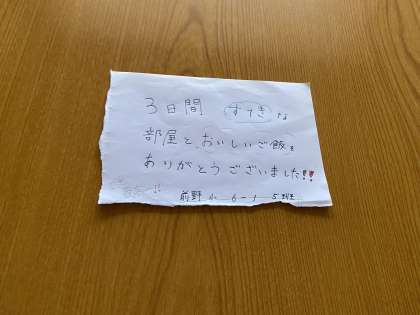 3日間 すてきな
部屋と、おいしいご飯を
ありがとうございました!!
前野小 6-1 5班